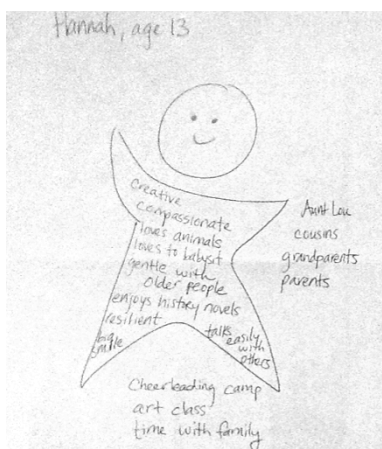 Hannah, age 13
creative
compassionate
loves animals
loves to babysit
gentle with
older people
enjoys history novels
resilient
big
smile
talks
easily
with
others
Aunt Lou
cousins
grandparents
parents
Cheerleading camp
art class
time with family